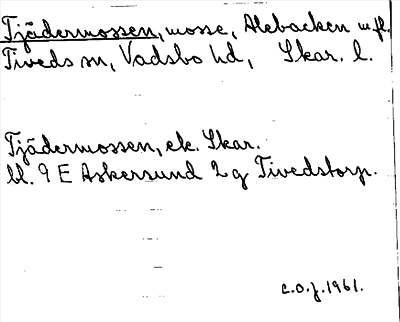 Tjädermossen, mosse, Alebacken m.fl.
Tiveds sn, Vadsbo hd, Skar. l.
Tjädermossen, ek. Skar.
bl. 9 E Askersund 2 g Tivedstorp.
C.O.J. 1961.